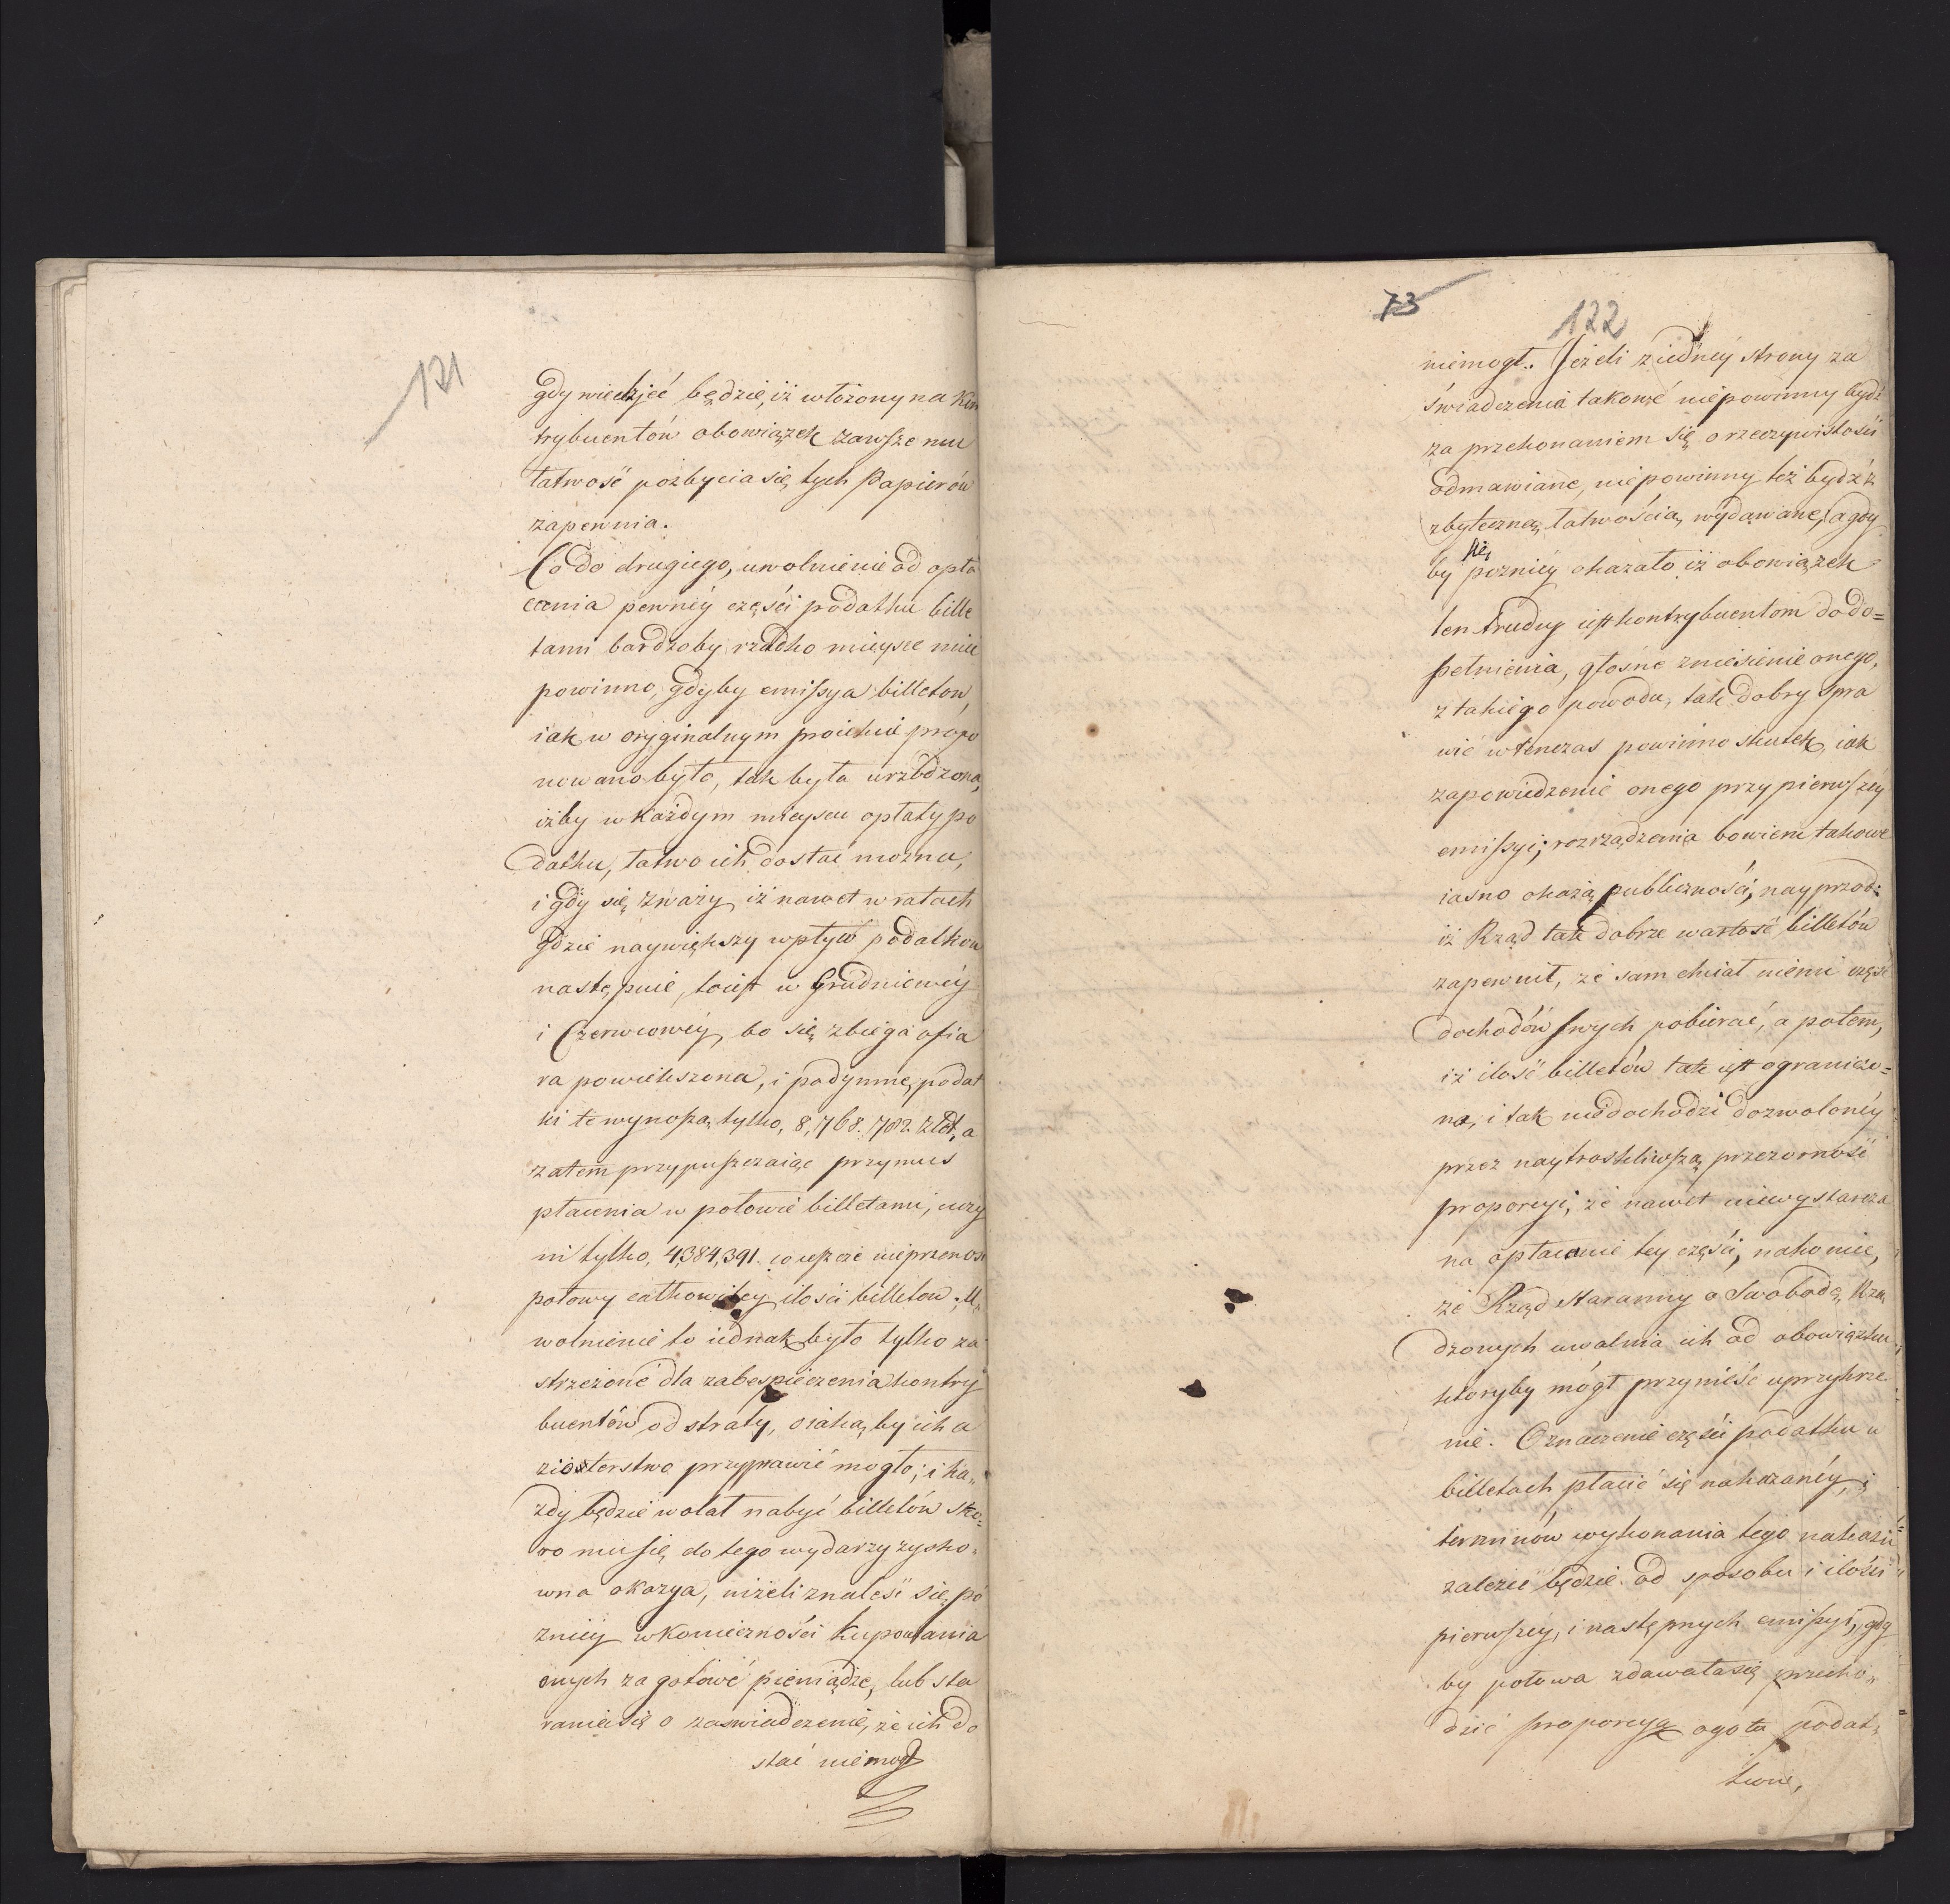 121
gdy wiedzieć będzie, iż włożony na Kon
trybuentów obowiązek zawsze mu
łatwość pozbycia się tych Papierów
zapewnia.
Co do drugiego, uwolnienie od opła
cenia pewnéy części podatku bille
tami bardzoby rzadko mieysce mieć
powinno, gdyby emissya billetow,
iak w oryginalnym proiekcie propo
nowano było, tak była urządzona,
iżby w każdym mieyscu opłaty po
datku, łatwo ich dostać można,
i gdy się zważy iż nawet w ratach
gdzie naywiększy wpływ podatkow
następuie, toiest w Grudniowéy
i Czerwcowéy, bo się zbiega ofia
ra powiększona, i podymne, podat
ki te wynoszą tylko, 8,768.782 Złot, a
zatem przypuszczaiąc przymus
płacenia w połowie billetami, uczy
ni tylko, 4,384,391. co ieszcze nieprzenosi
połowy całkowitey ilości billetow. U„
wolnienie to iednak było tylko za
strzeżone dla zabespieczenia kontry
buentów od straty, o iaką by ich a
zioterstwo przyprawić mogło; i ka„
żdy będzie wolał nabyć billetów sko„
ro mu się do tego wydarzy zysko„
wna okazya, niżeli znaleść się pó
zniéy w konieczności kupowania
onych za gotowe pieniądze, lub sta
rania się o zaswiadczenie, że ich do
stać niemógł
73
122
niemogł. Jeżeli z iednéy strony za
świadczenia takowe niepowinny bydź
za przekonaniem się o rzeczywistości
odmawiane, niepowinny też bydź z
zbyteczną łatwością wydawane, a gdy
by się pozniéy okazało iż obowiązek
ten trudny iest kontrybuentom do do=
pełnienia, głośne zniesienie onego,
z takiego powodu, tak dobry spra
wić wtenczas powinno skutek, iak
zapowiedzenie onego przy pierwszéy
emissyi; rozrządzenia bowiem takowe
iasno okażą publiczności, nayprzod:
iż Rząd tak dobrze wartość billetów
zapewnił, że sam chciał niemi część
dochodów swych pobierać, a potem,
iż ilość billetów tak iest ograniczo=
na, i tak niedochodzi dozwolonéy
przez naytroskliwszą przezorność
proporcyi, że nawet niewystarcza
na opłacenie tey części, nakoniec,
że Rząd staranny o Swobodę Rzą
dzonych uwalnia ich od obowiązku
któryby mógł przynieść uprzykrze
nie. Oznaczenie części podatku w
billetach płacić się nakazanéy, i
terminów wykonania tego nakazu
zależeć będzie od sposobu i ilości
pierwszéy, i następnych emissyi, gdy
by połowa zdawała się przecho„
dzić proporcyą ogołu podat„
kowe,